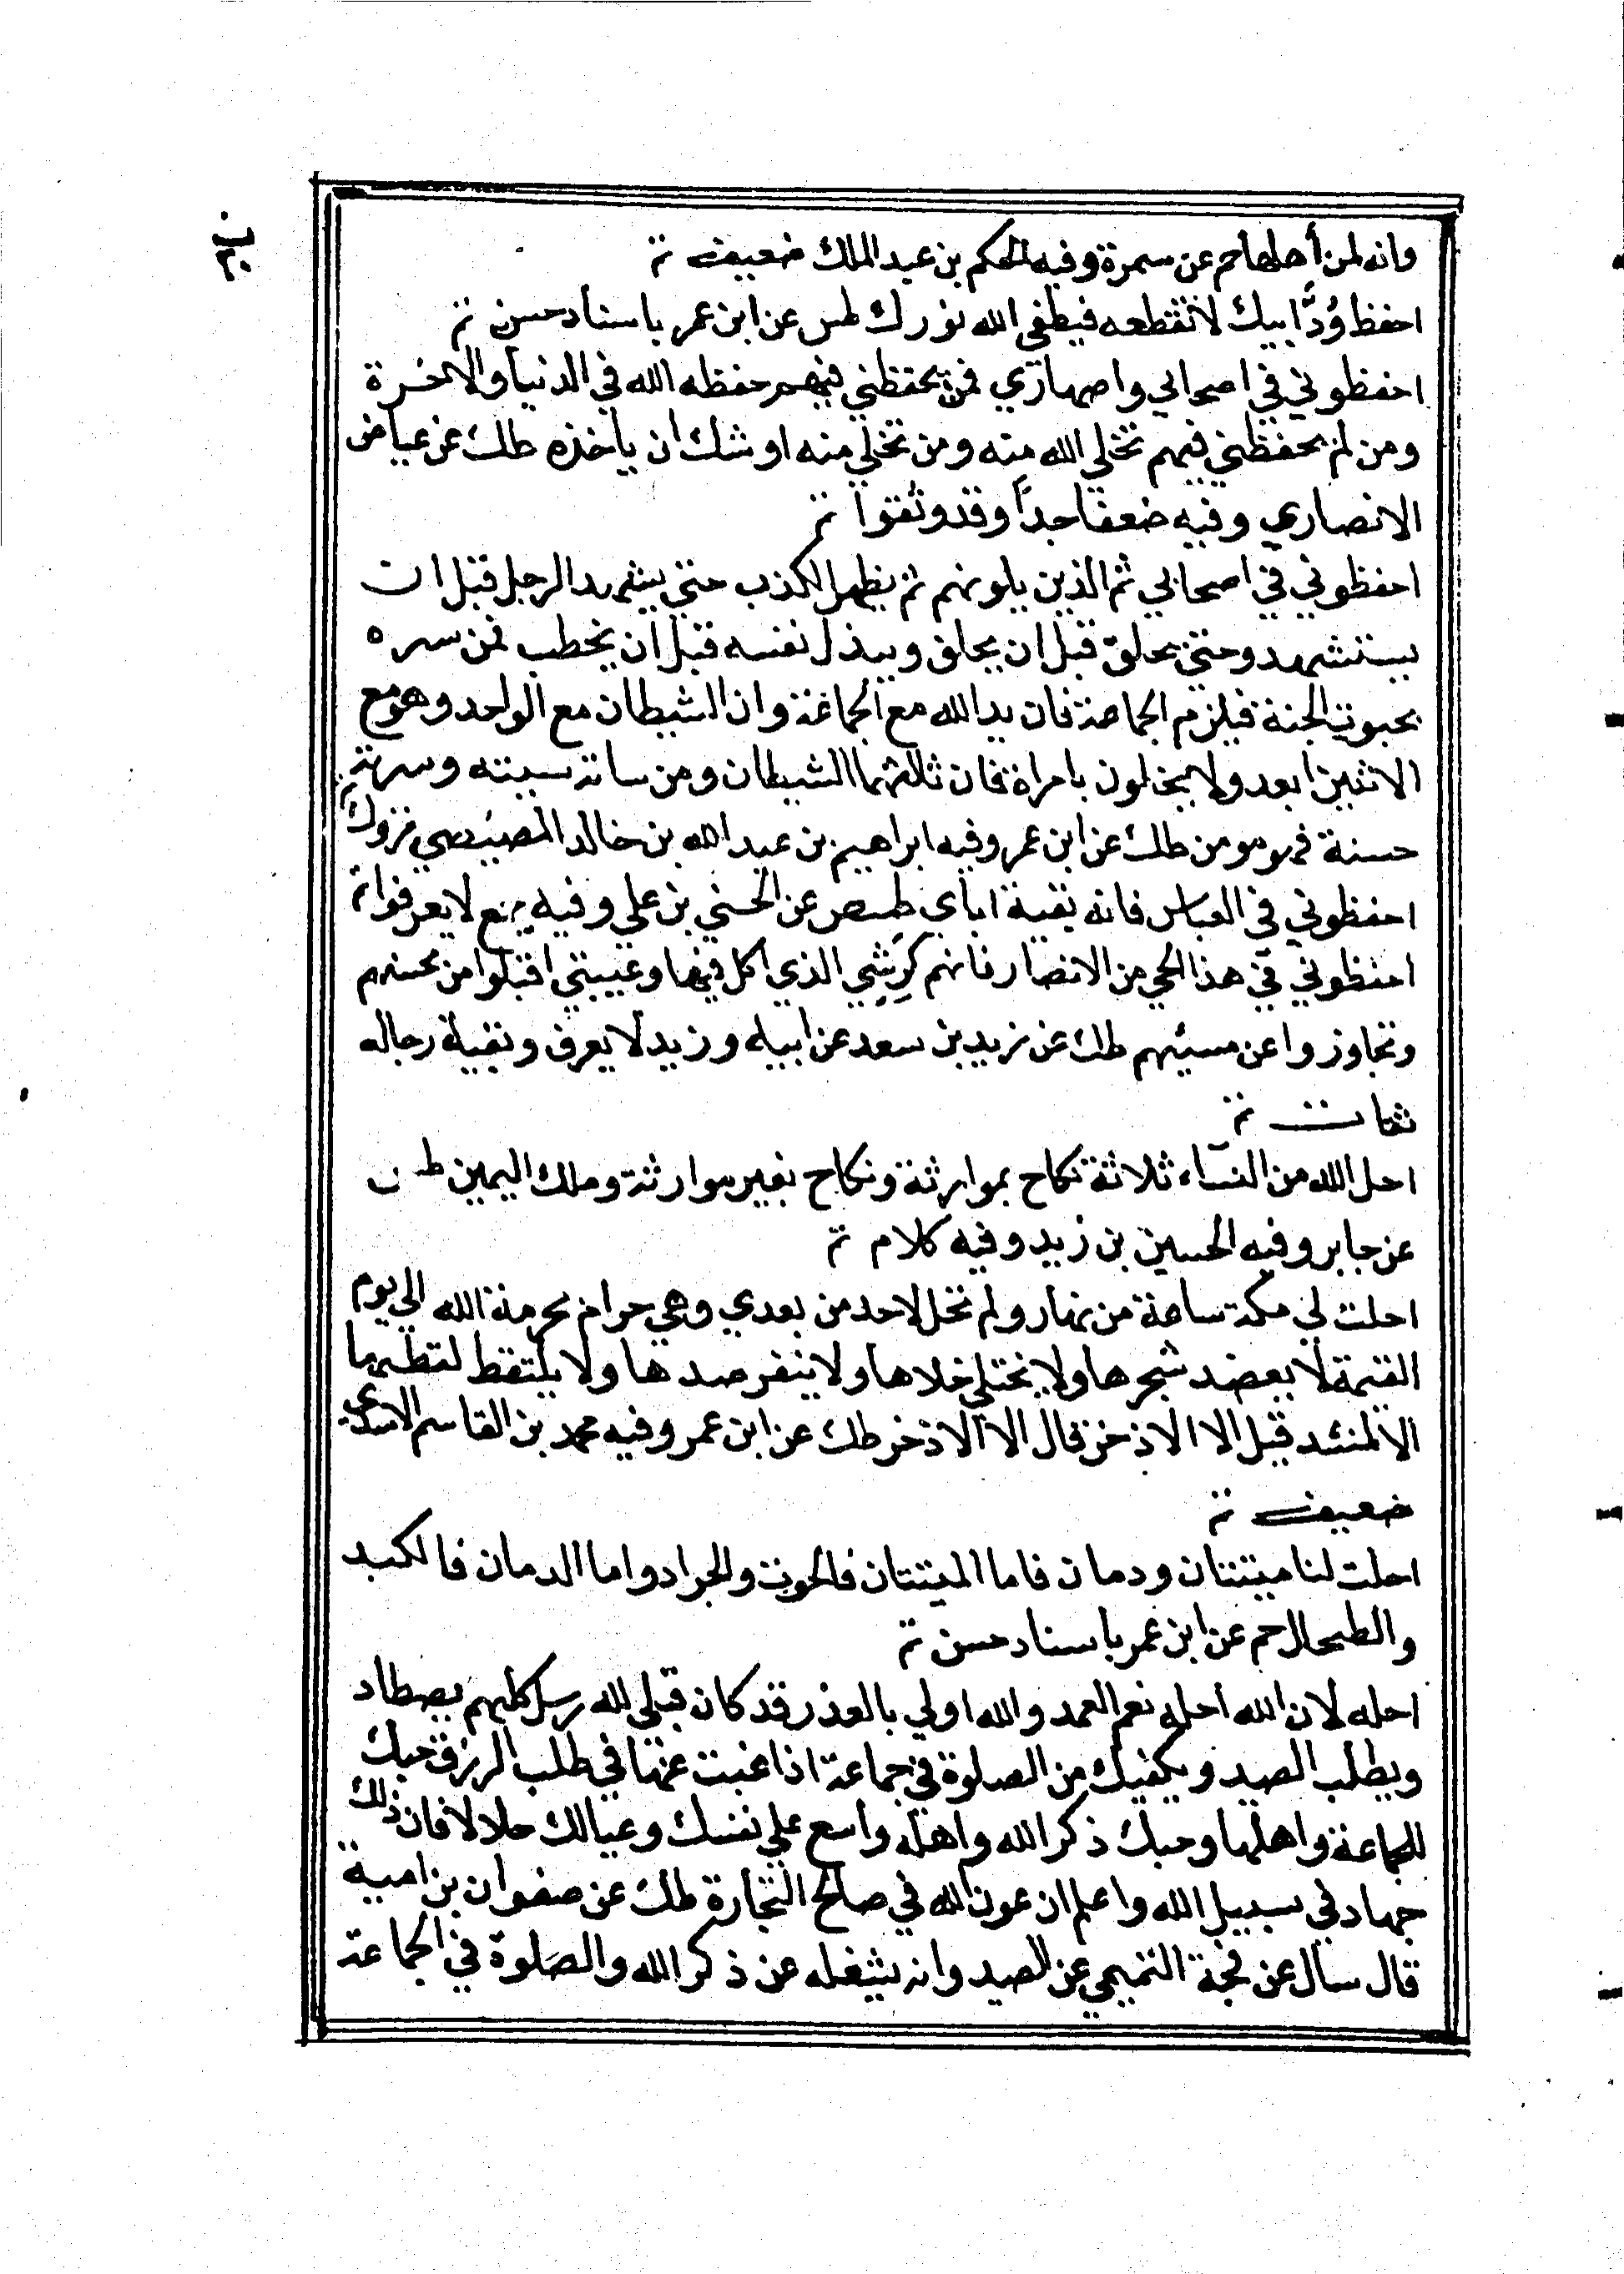 وانه لمن أهلها حم عن سمرة وفيه الحكم بن عبد الملك ضعيف
احفظ وُدَّ ابيك لا تقطعه فيطفى الله نورك طس عن ابن عمر باسناد حسن
احفظوني في اصحابي واصهاري فمن يحفظني فيهم حفظه الله في الدنيا والاخرة
ومن لم يحفظني فيهم تخلي الله منه ومن تخلي منه اوشك ان ياخذه طك عن عياض
الانصاري وفيه ضعفا جداً وقد وثقوا
احفظوني في اصحابي ثم الذين يلونهم ثم يظهر الكذب حتي يشهد الرجل قبل ان
يستشهد وحتي يحلق قبل ان يحلق ويبذل نفسه قبل ان يخطب فمن سره
بحبوت الجنة فيلزم الجماعة فان يد الله مع الجماعة وان الشيطان مع الواحد وهو مع
الاثنين ابعد ولا يخلون بامراة فان ثالثهما الشيطان ومن ساته سيئته وسرته
حسنة فهو مومن طك عن ابن عمر وفيه ابراهيم بن عبد الله بن خالد المصيصي متروك
احفظوني في العباس فانه بقية اباي طصص عن الحسني بن علي وفيه من لا يعرفوا
احفظوني في هذا الحي من الانصار فانهم كَرِشِي الذي اكل فيها وعيبتي اقبلوا من محسنهم
وتجاوزوا عن مسيئهم طك عن زيد بن سعد عن ابيه وزيد لا يعرف وبقية رجاله
ثقات
احل الله من النساء ثلاثة نكاح بموارثة ونكاح بغير موارثة وملك اليمين طس
عن جابر وفيه الحسين بن زيد وفيه كلام
احلت لي مكة ساعة من نهار ولم تحل لاحد من بعدي وهي حرام بحرمة الله الي يوم
القيمة لا يعضد شجرها ولا يختلي خلاها ولا ينفر صيدها ولا يلتقط لقطتها
الا لمنشد قيل الا الاذخر قال الا الاذخر طك عن ابن عمر وفيه محمد بن القاسم الاسدي
ضعيف
احلت لنا ميتتان ودمان فاما الميتتان فالحوت والجراد واما الدمان فالكبد
والطحال حم عن ابن عمر باسناد حسن
احله لان الله احله نعم العمد والله اولي بالعذر قد كان قبلي لله رسل كلهم يصطاد
ويطلب الصيد ويكفيك من الصلوة في جماعة اذا غبت عنها في طلب الرزق حبك
للجماعة واهلها وحبك ذكر الله واهله واسع علي نفسك وعيالك حلالا فان ذلك
جهاد في سبيل الله واعلم ان عون الله في صالح التجارة طك عن صفوان بن امية
قال سال عن التميمي عن الصيد وانه يشغله عن ذكر الله والصلوة في الجماعة